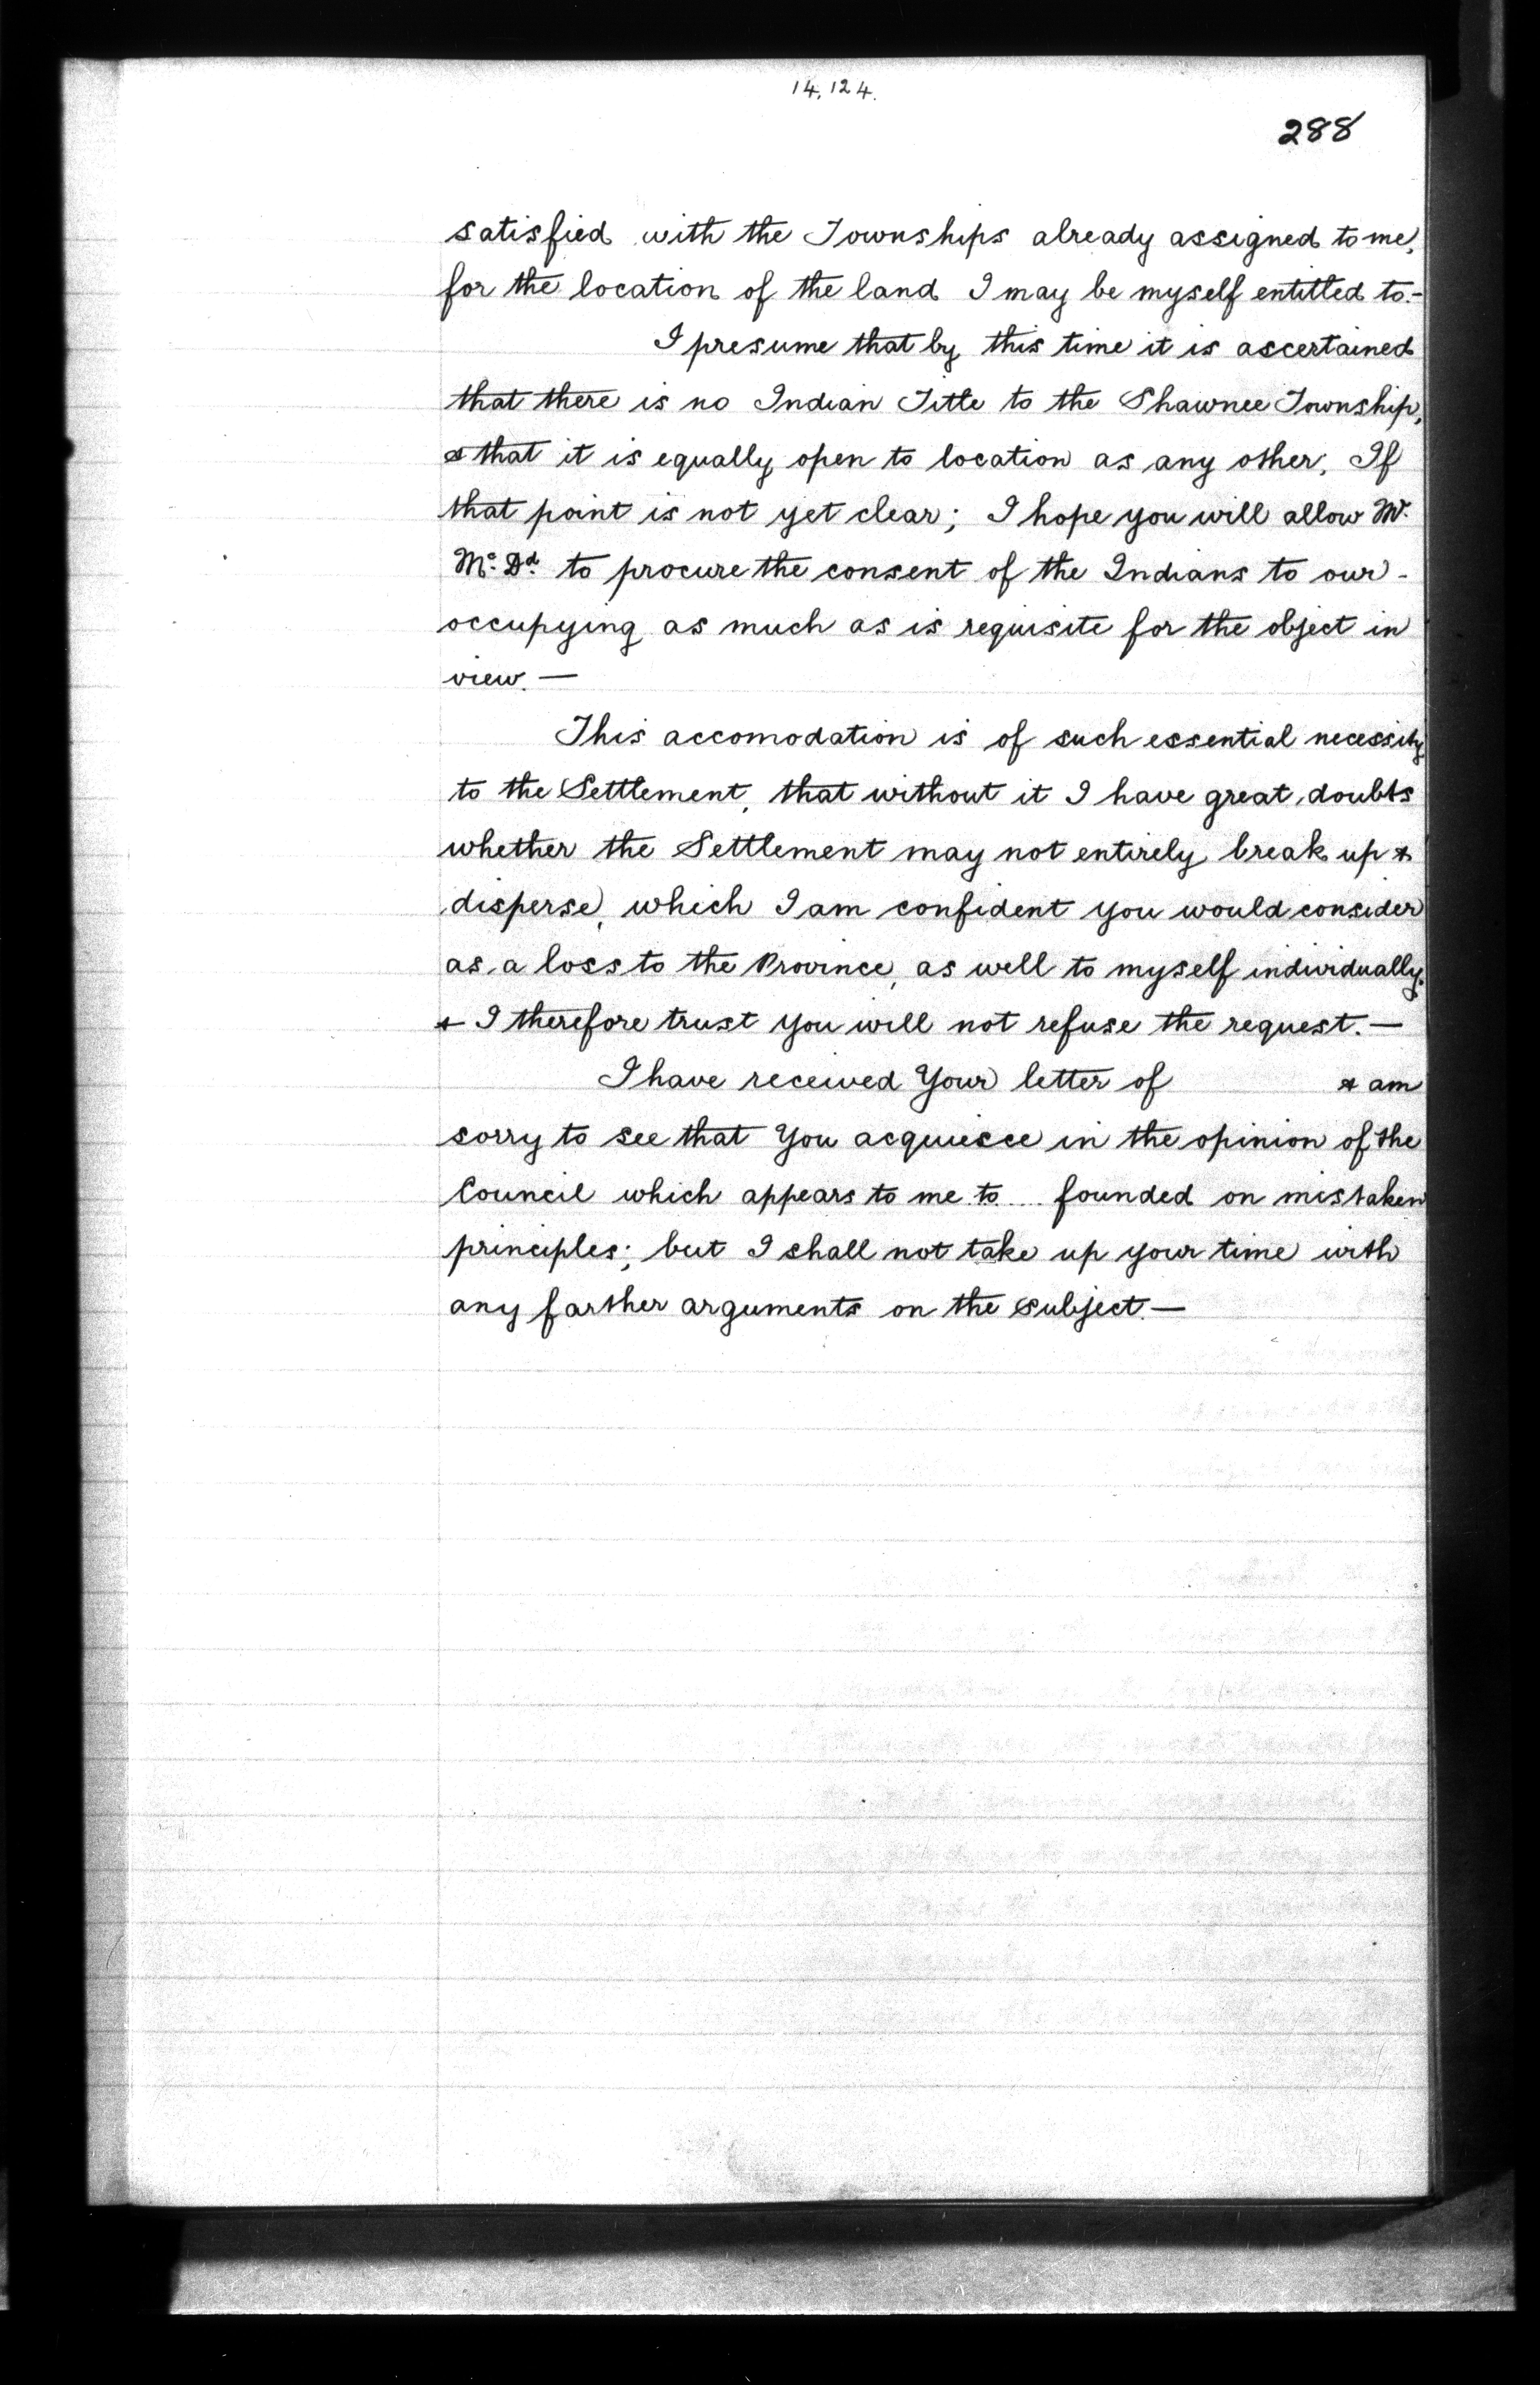 14,124.
288
satisfied with the Townships already assigned to me,
for the location of the land I may be myself entitled to.-
I presume that by this time it is ascertained
that there is no Indian Title to the Shawnee Township,
& that it is equally open to location as any other. If
that point is not yet clear; I hope you will allow Mr.
Mc. Dd. to procure the consent of the Indians to our -
occupying as much as is requisite for the object in
view. —
This accomodation is of such essential necessity
to the Settlement, that without it I have great doubts
whether the Settlement may not entirely break up &
disperse, which I am confident you would consider
as a loss to the Province, as well to myself individually.
& I therefore trust you will not refuse the request. —
I have received Your letter of & am
sorry to see that You acquiesce in the opinion of the
Council which appears to me to .... founded on mistaken
principles; but I shall not take up your time with
any farther arguments on the subject. —